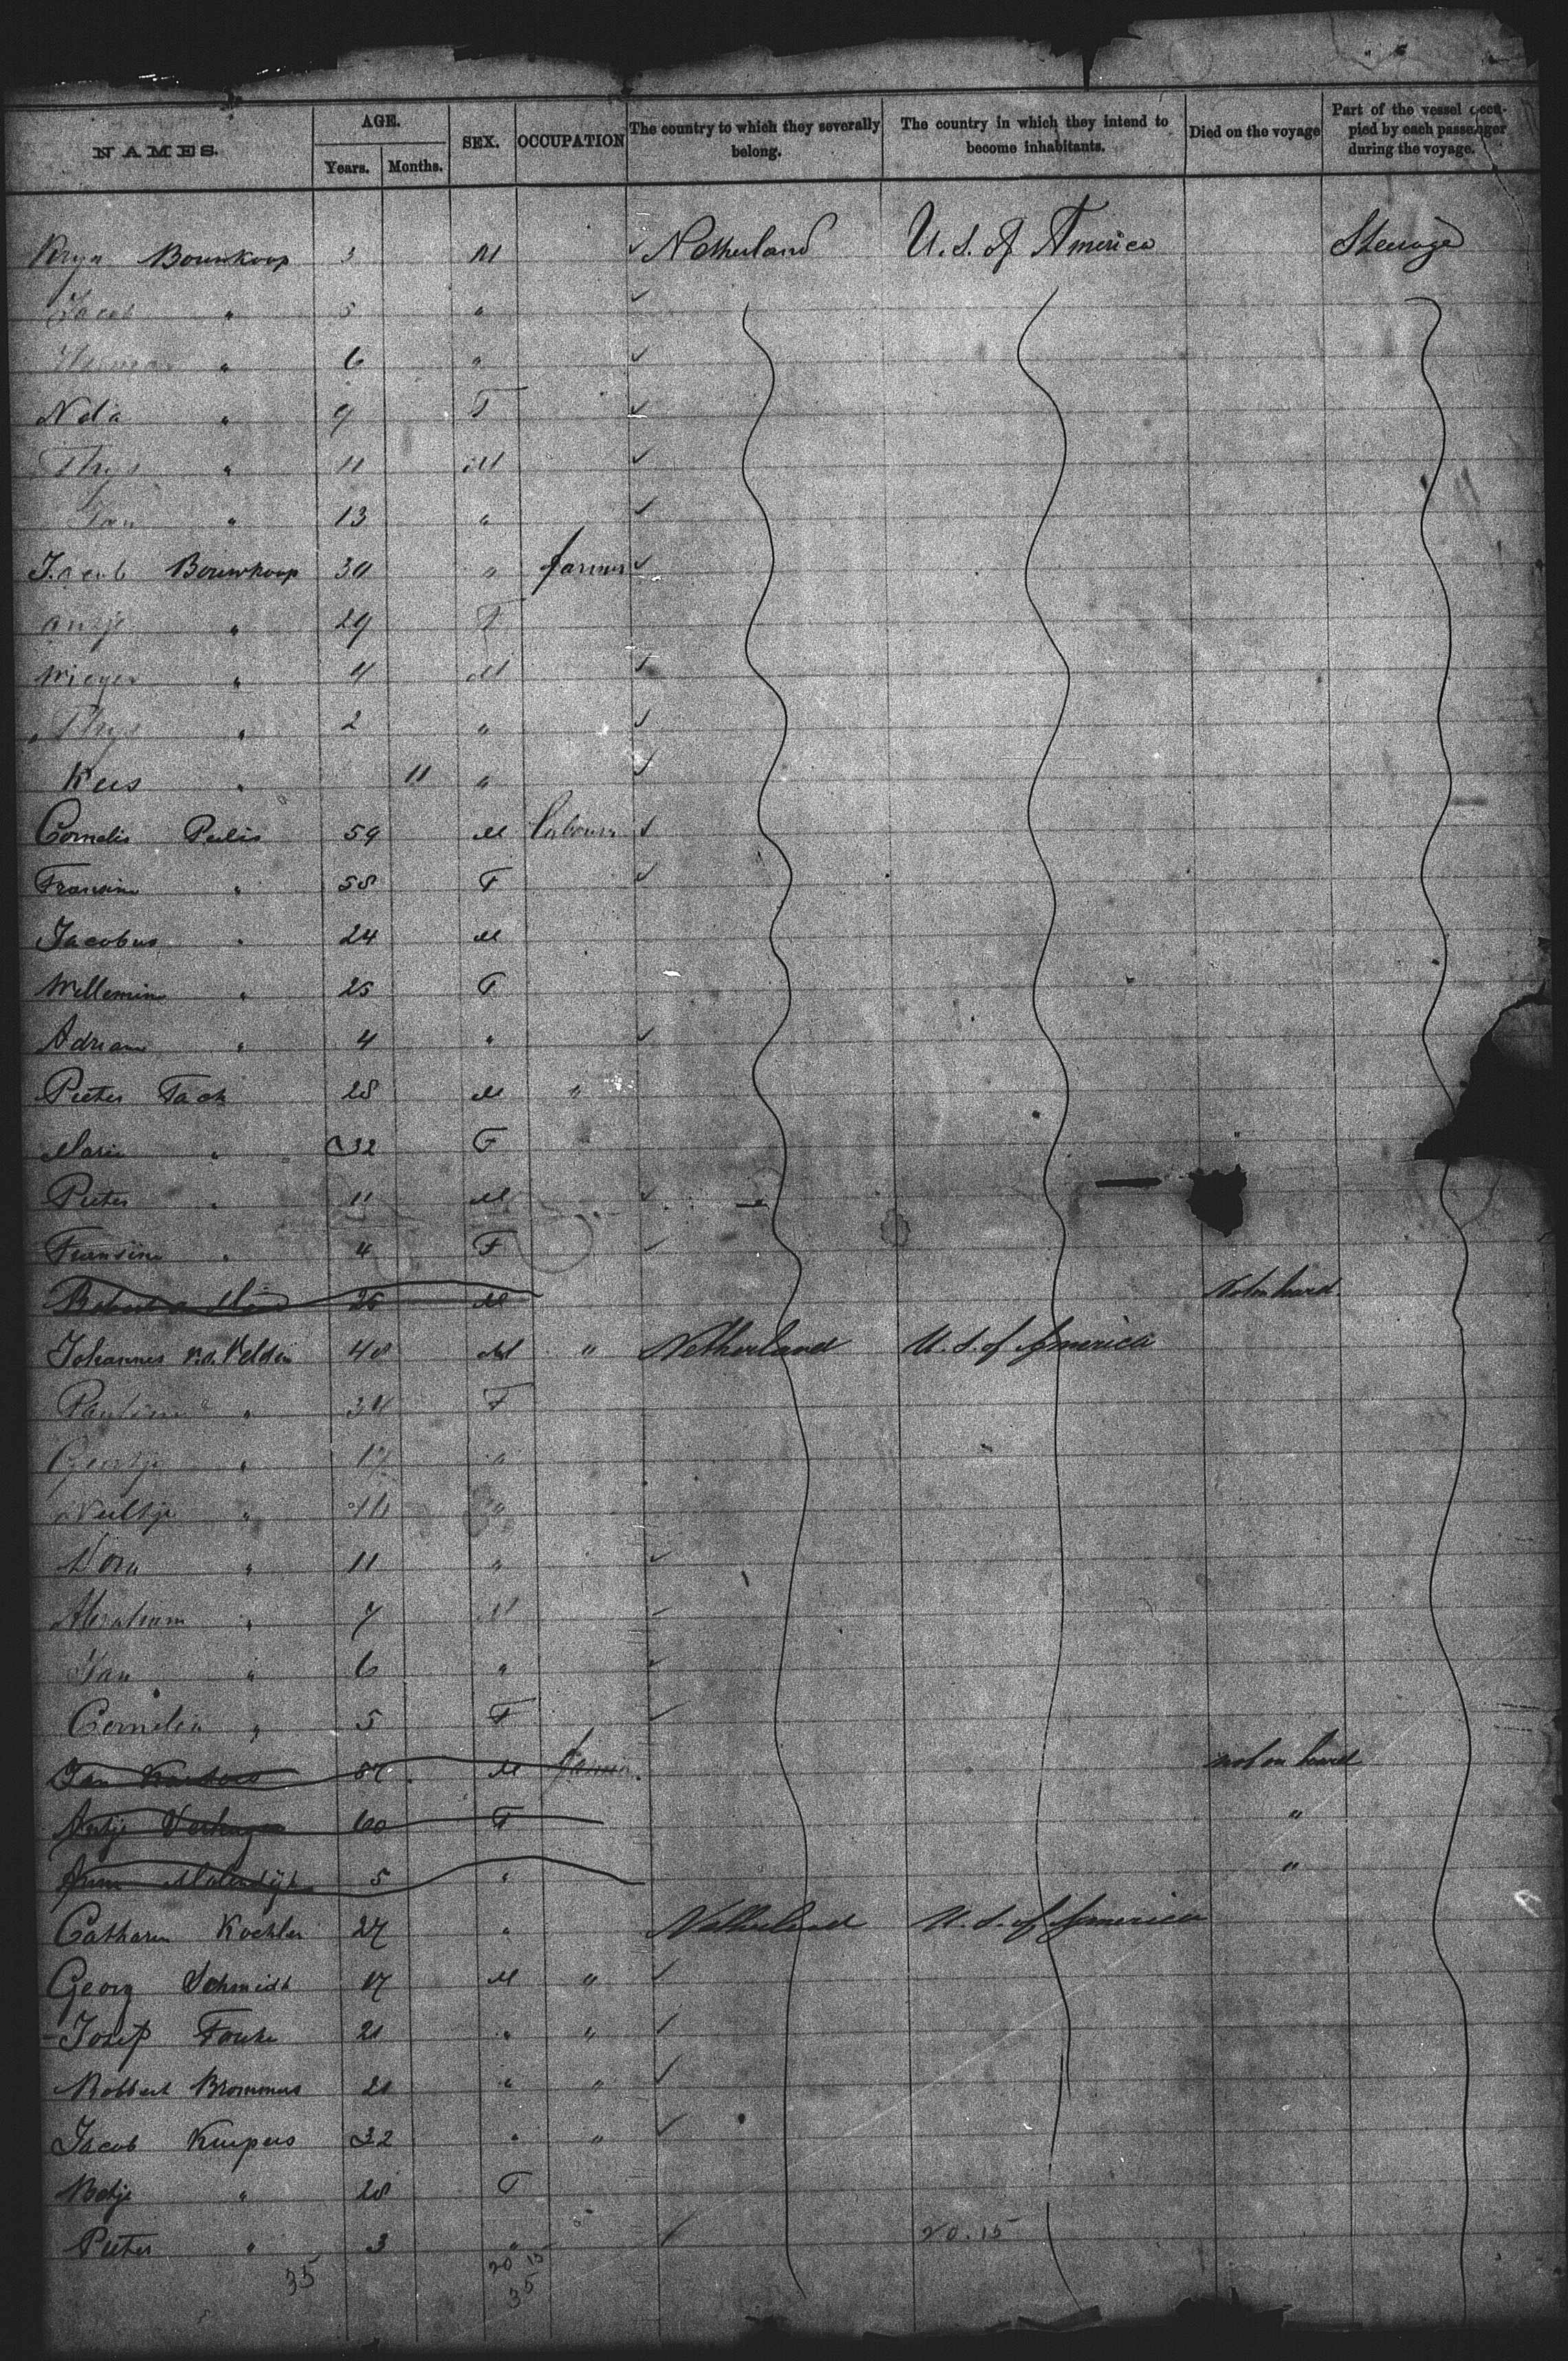 NAMES. AGE. Years. Months. SEX. OCCUPATION The country to which they severally belong. The country in which they intend to become inhabitants. Died on the voyage Part of the vessel occupied by each passenger during the voyage.
Bouwkoop 3 M Netherland U. S. of America Steerage
Jacob " 5 "
" 6 "
Nela " 9 F
Thys " 11 M
Jan " 13 "
Jacob Bouwkoop 30 " farmer
Antje " 29 F
Wieger " 4 M
Thys " 2 "
Kees " 11 "
Cornelis Pulis 59 M labourer
Fransina " 58 F
Jacobus " 24 M
Willemina " 25 F
Adriana " 4 "
Pieter Tack 28 M "
Maria " 32 F
Pieter " 11 M
Fransina " 4 F
26 M Not on board
Johannes v.d. Velden 40 M " Netherland U. S. of America
Paulina " 34 F
Geertje " 17 "
Neeltje " "
" 11 "
Abraham " 7 M
Jan " 6 "
Cornelia " 5 F
Jan 57 M farmer not on board
Antje 60 F "
Molendijk 5 " "
Catharin Kochler 27 " Netherland U. S. of America
Georg Schmidt 17 M "
Josef 21 " "
Robbert Brommus 21 " "
Jacob Kuipers 32 " "
Betje " 28 F
Pieter " 3 " 20.15
35 20 15
35